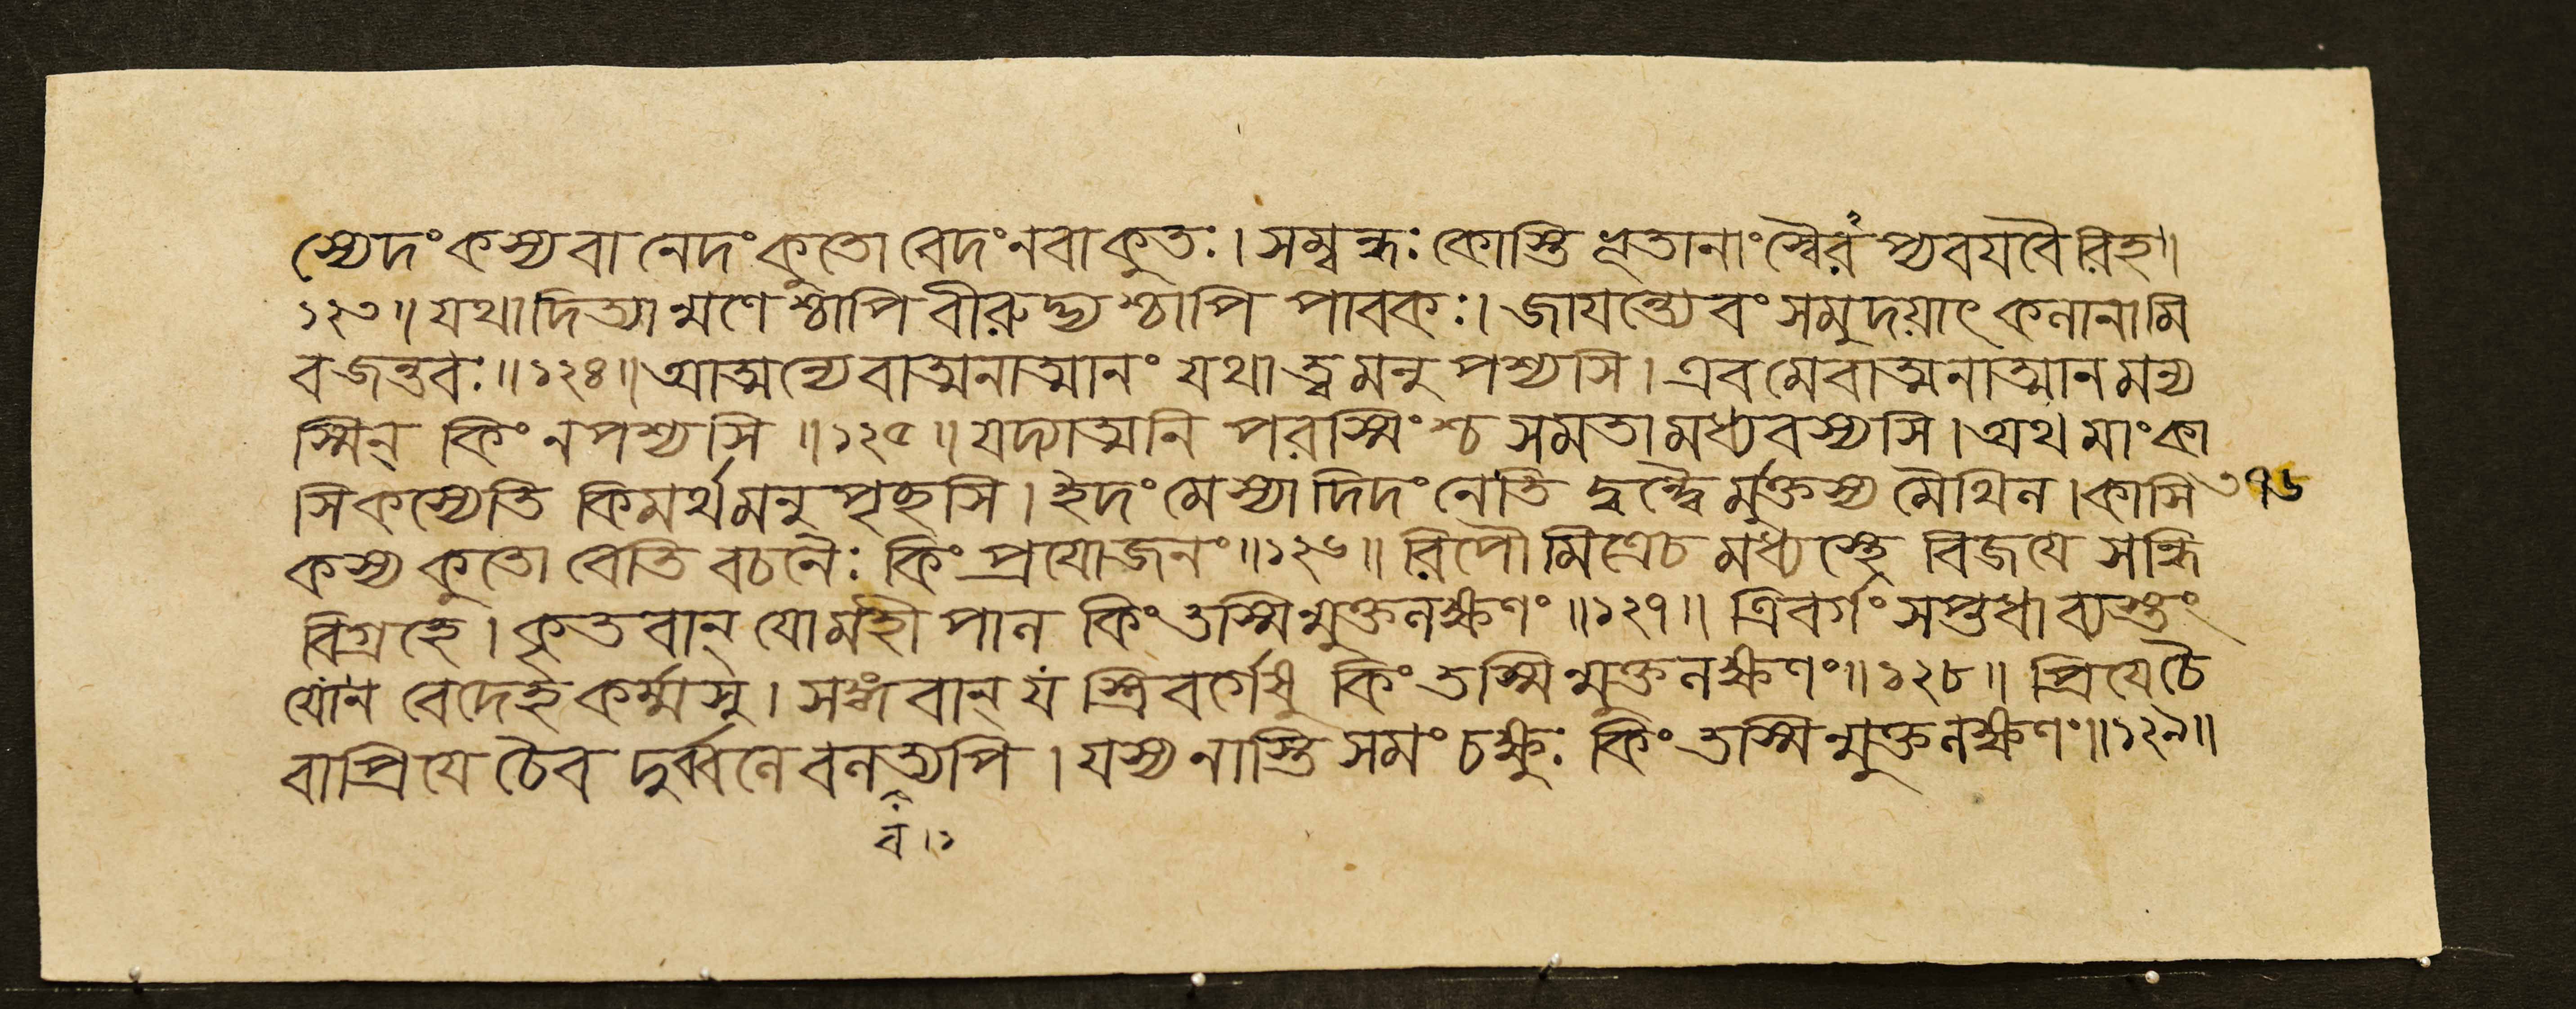 স্যেদং কস্য বা নেদং কুতো বেদং ন বা কুতঃ। সম্বন্ধঃ কোস্তি ভূতানাং স্বৈরপ্যবযবৈরিহ॥
১২৩॥ যথাদিত্যান্মণেশ্চাপি বীরুদ্ভ্যশ্চাপি পাবকঃ। জাযন্ত্যেবং সমুদয়াৎ কলানামি
ব জন্তবঃ॥১২৪॥ আত্মন্যেবাত্মনাত্মানং যথা ত্বমনুপশ্যসি। এবমেবাত্মনাত্মানমন্য
স্মিন্ কিং ন পশ্যসি॥১২৫॥ যদ্যাত্মনি পরস্মিংশ্চ সমতামধ্যবস্যসি। অথ মাং কা
সি কস্যেতি কিমর্থমনুপৃচ্ছসি। ইদং মে স্যাদিদং নেতি দ্বন্দ্বৈর্মুক্তস্য মৈথিল। কাসি
৩৭৬
কস্য কুতো বেতি বচনৈঃ কিং প্রযোজনং॥১২৬॥ রিপৌ মিত্রে চ মধ্যস্থে বিজযে সন্ধি
বিগ্রহে। কৃতবান্ যো মহীপাল কিং তস্মিন্মুক্তলক্ষণং॥১২৭॥ ত্রিবর্গং সপ্তধা ব্যস্তং
যো ন বেদেহ কর্ম্মসু। সঙ্গবান্ যস্ত্রিবর্গেষু কিং তস্মিন্মুক্তলক্ষণং॥১২৮॥ প্রিযে চৈ
বাপ্রিযে চৈব দুর্ব্বলে বলত্যপি। যস্য নাস্তি সমং চক্ষুঃ কিং তস্মিন্মুক্তলক্ষণং॥১২৯॥
ব।১